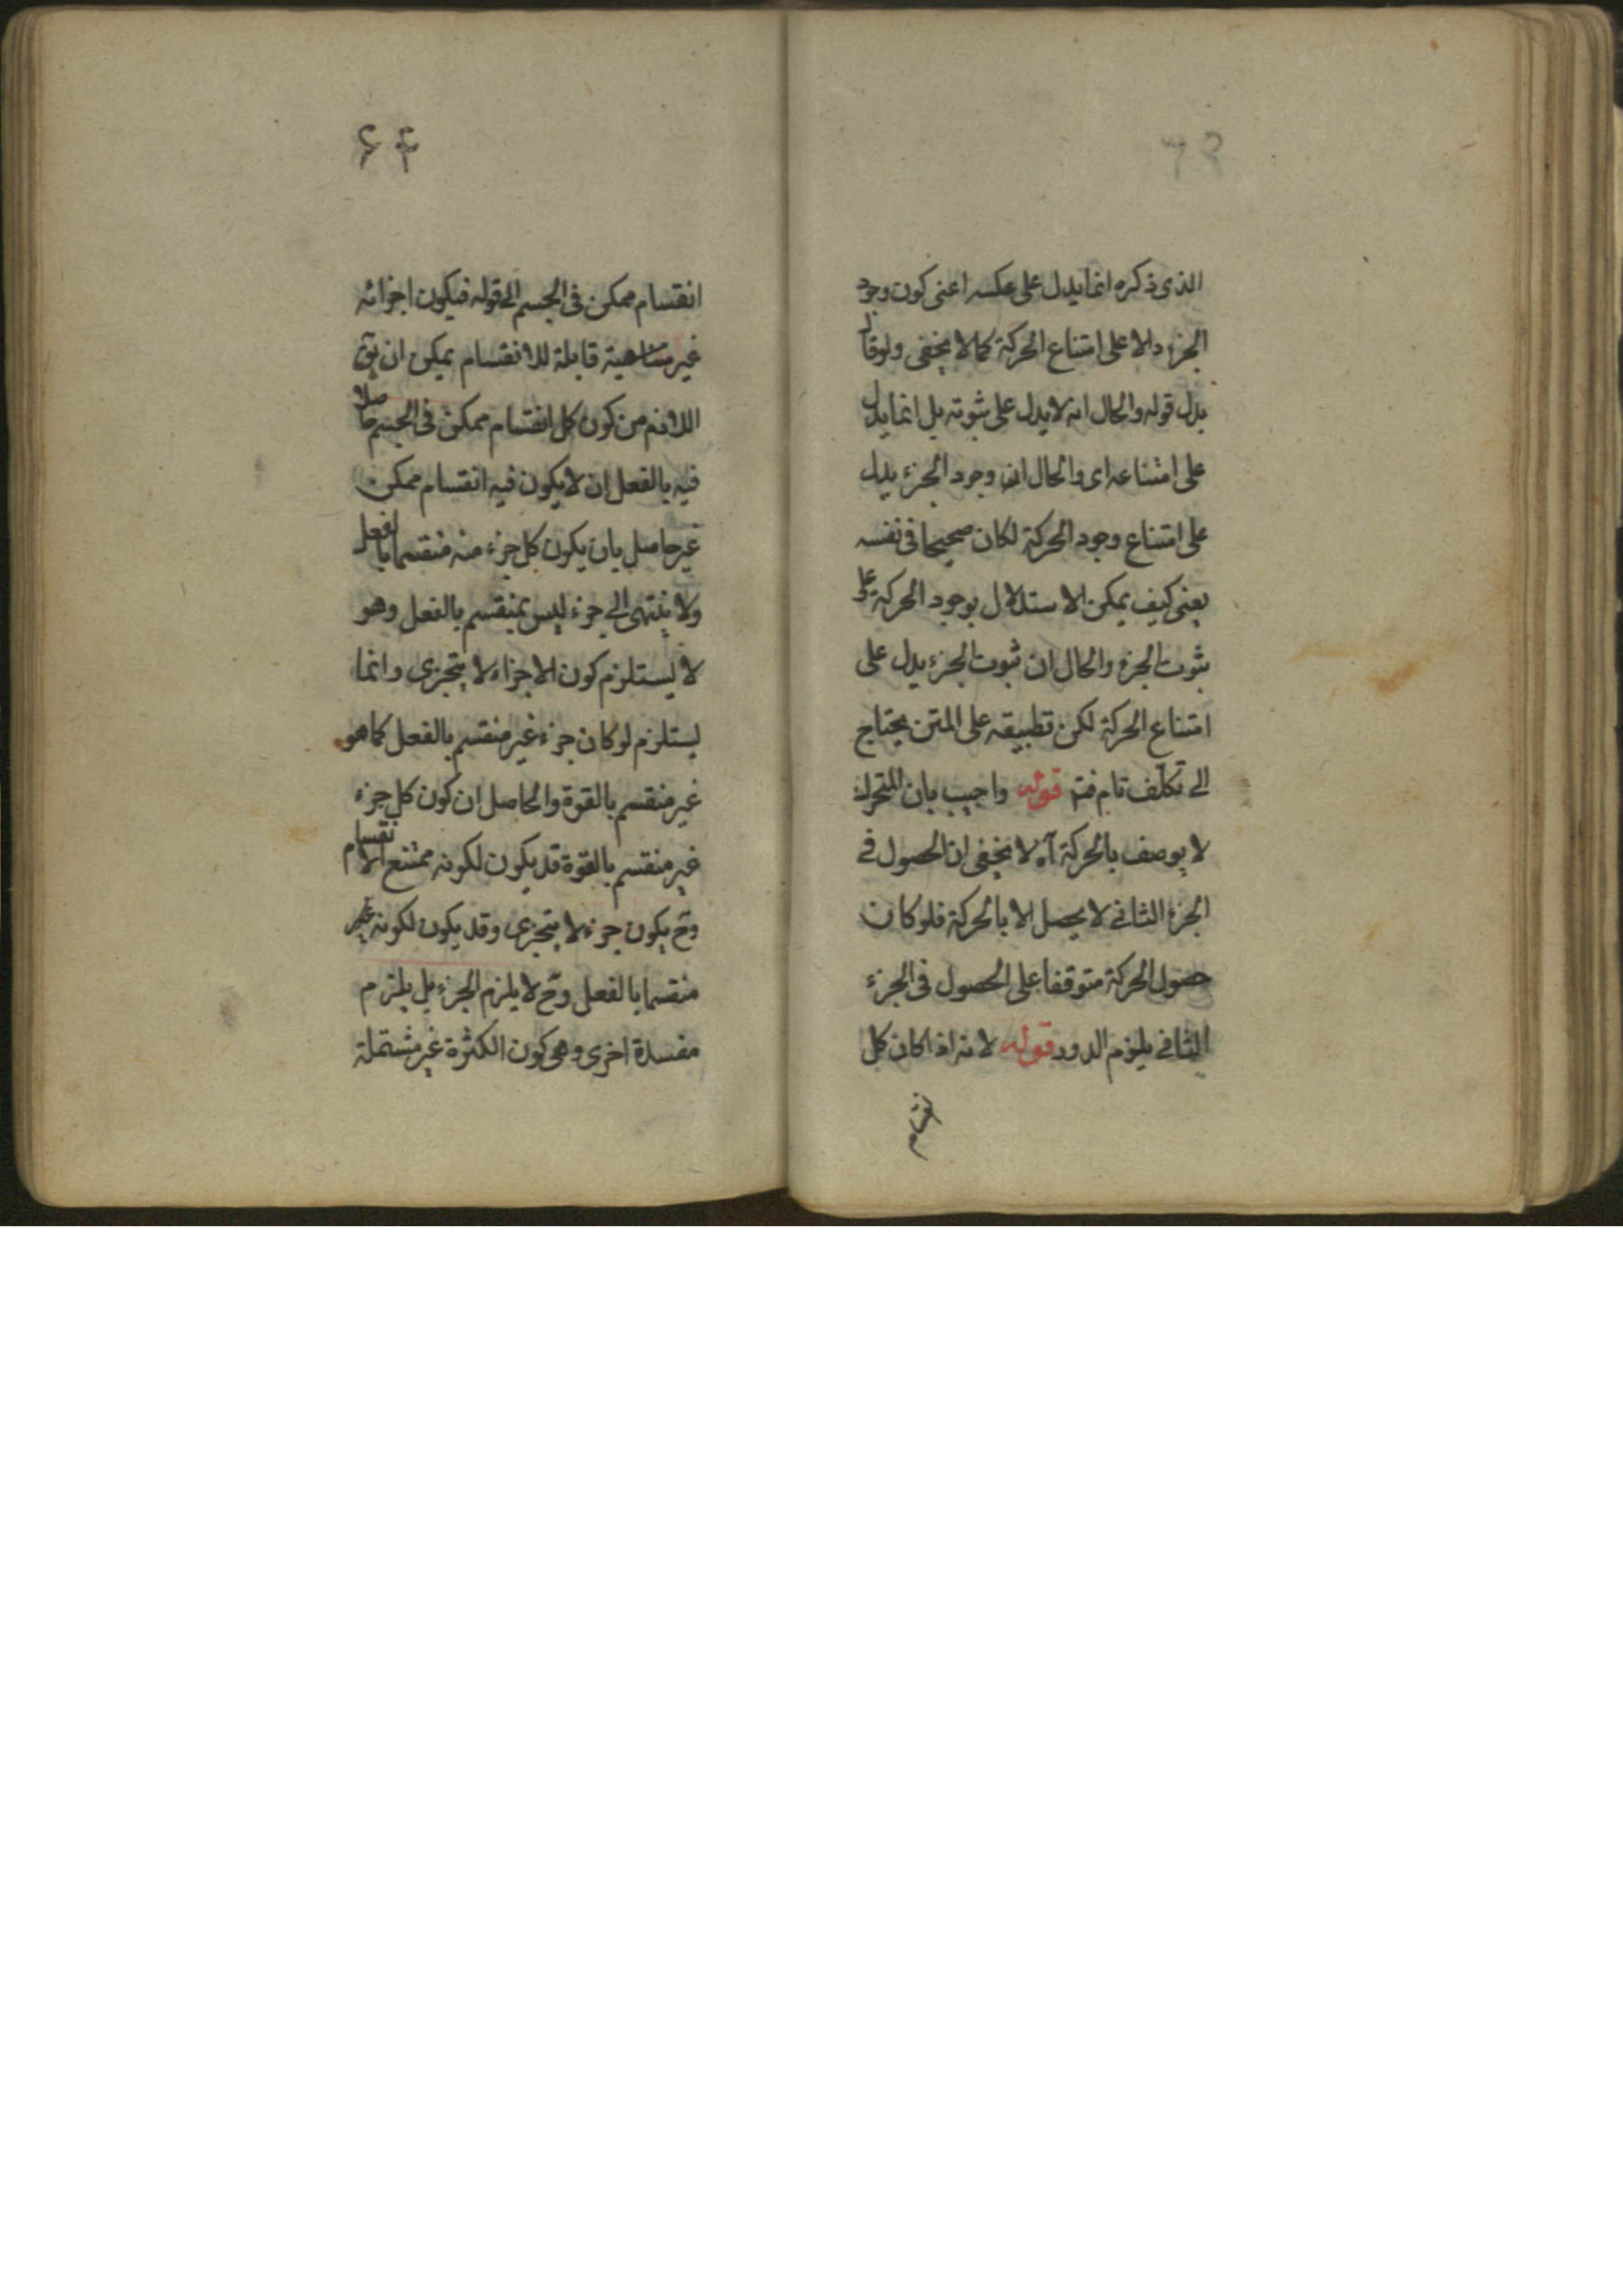 الذى ذكره انما يدل على عكسه اعنى كون وجود
الجزء دالا على امتناع الحركة كما لا يخفى ولو قال
بدل قوله والحال انه لا يدل على ثبوته بل انما يدل
على امتناعه اى والحال ان وجود الجزء يدل
على امتناع وجود الحركة لكان صحيحا فى نفسه
يعنى كيف يمكن الاستدلال بوجود الحركة على
ثبوت الجزء والحال ان ثبوت الجزء يدل على
امتناع الحركة لكن تطبيقه على المتن يحتاج
الى تكلف تام فتم قوله واجيب بان المتحرك
لا يوصف بالحركة آه لا يخفى ان الحصول فى
الجزء الثانى لا يحصل الا بالحركة فلو كان
حصول الحركة متوقفا على الحصول فى الجزء
الثانى يلزم الدور قوله لانه اذا كان كل
انقسام
۶۴
انقسام ممكن فى الجسم الى قوله فيكون اجزائه
غير متناهية قابلة للانقسام يمكن ان يق
اللازم من كون كل انقسام ممكن فى الجسم حاصلا
فيه بالفعل ان لا يكون فيه انقسام ممكن
غير حاصل بان يكون كل جزء منه منقسما بالفعل
ولا ينتهى الى جزء ليس بمنقسم بالفعل وهو
لا يستلزم كون الاجزاء لا يتجزى وانما
يستلزم لو كان جزء غير منقسم بالفعل كما هو
غير منقسم بالقوة والحاصل ان كون كل جزء
غير منقسم بالقوة قد يكون لكونه ممتنع الانقسام
وح يكون جزء لا يتجزى وقد يكون لكونه غير
منقسما بالفعل وح لا يلزم الجزء بل يلزم
مفسدة اخرى وهى كون الكثرة غير مشتملة